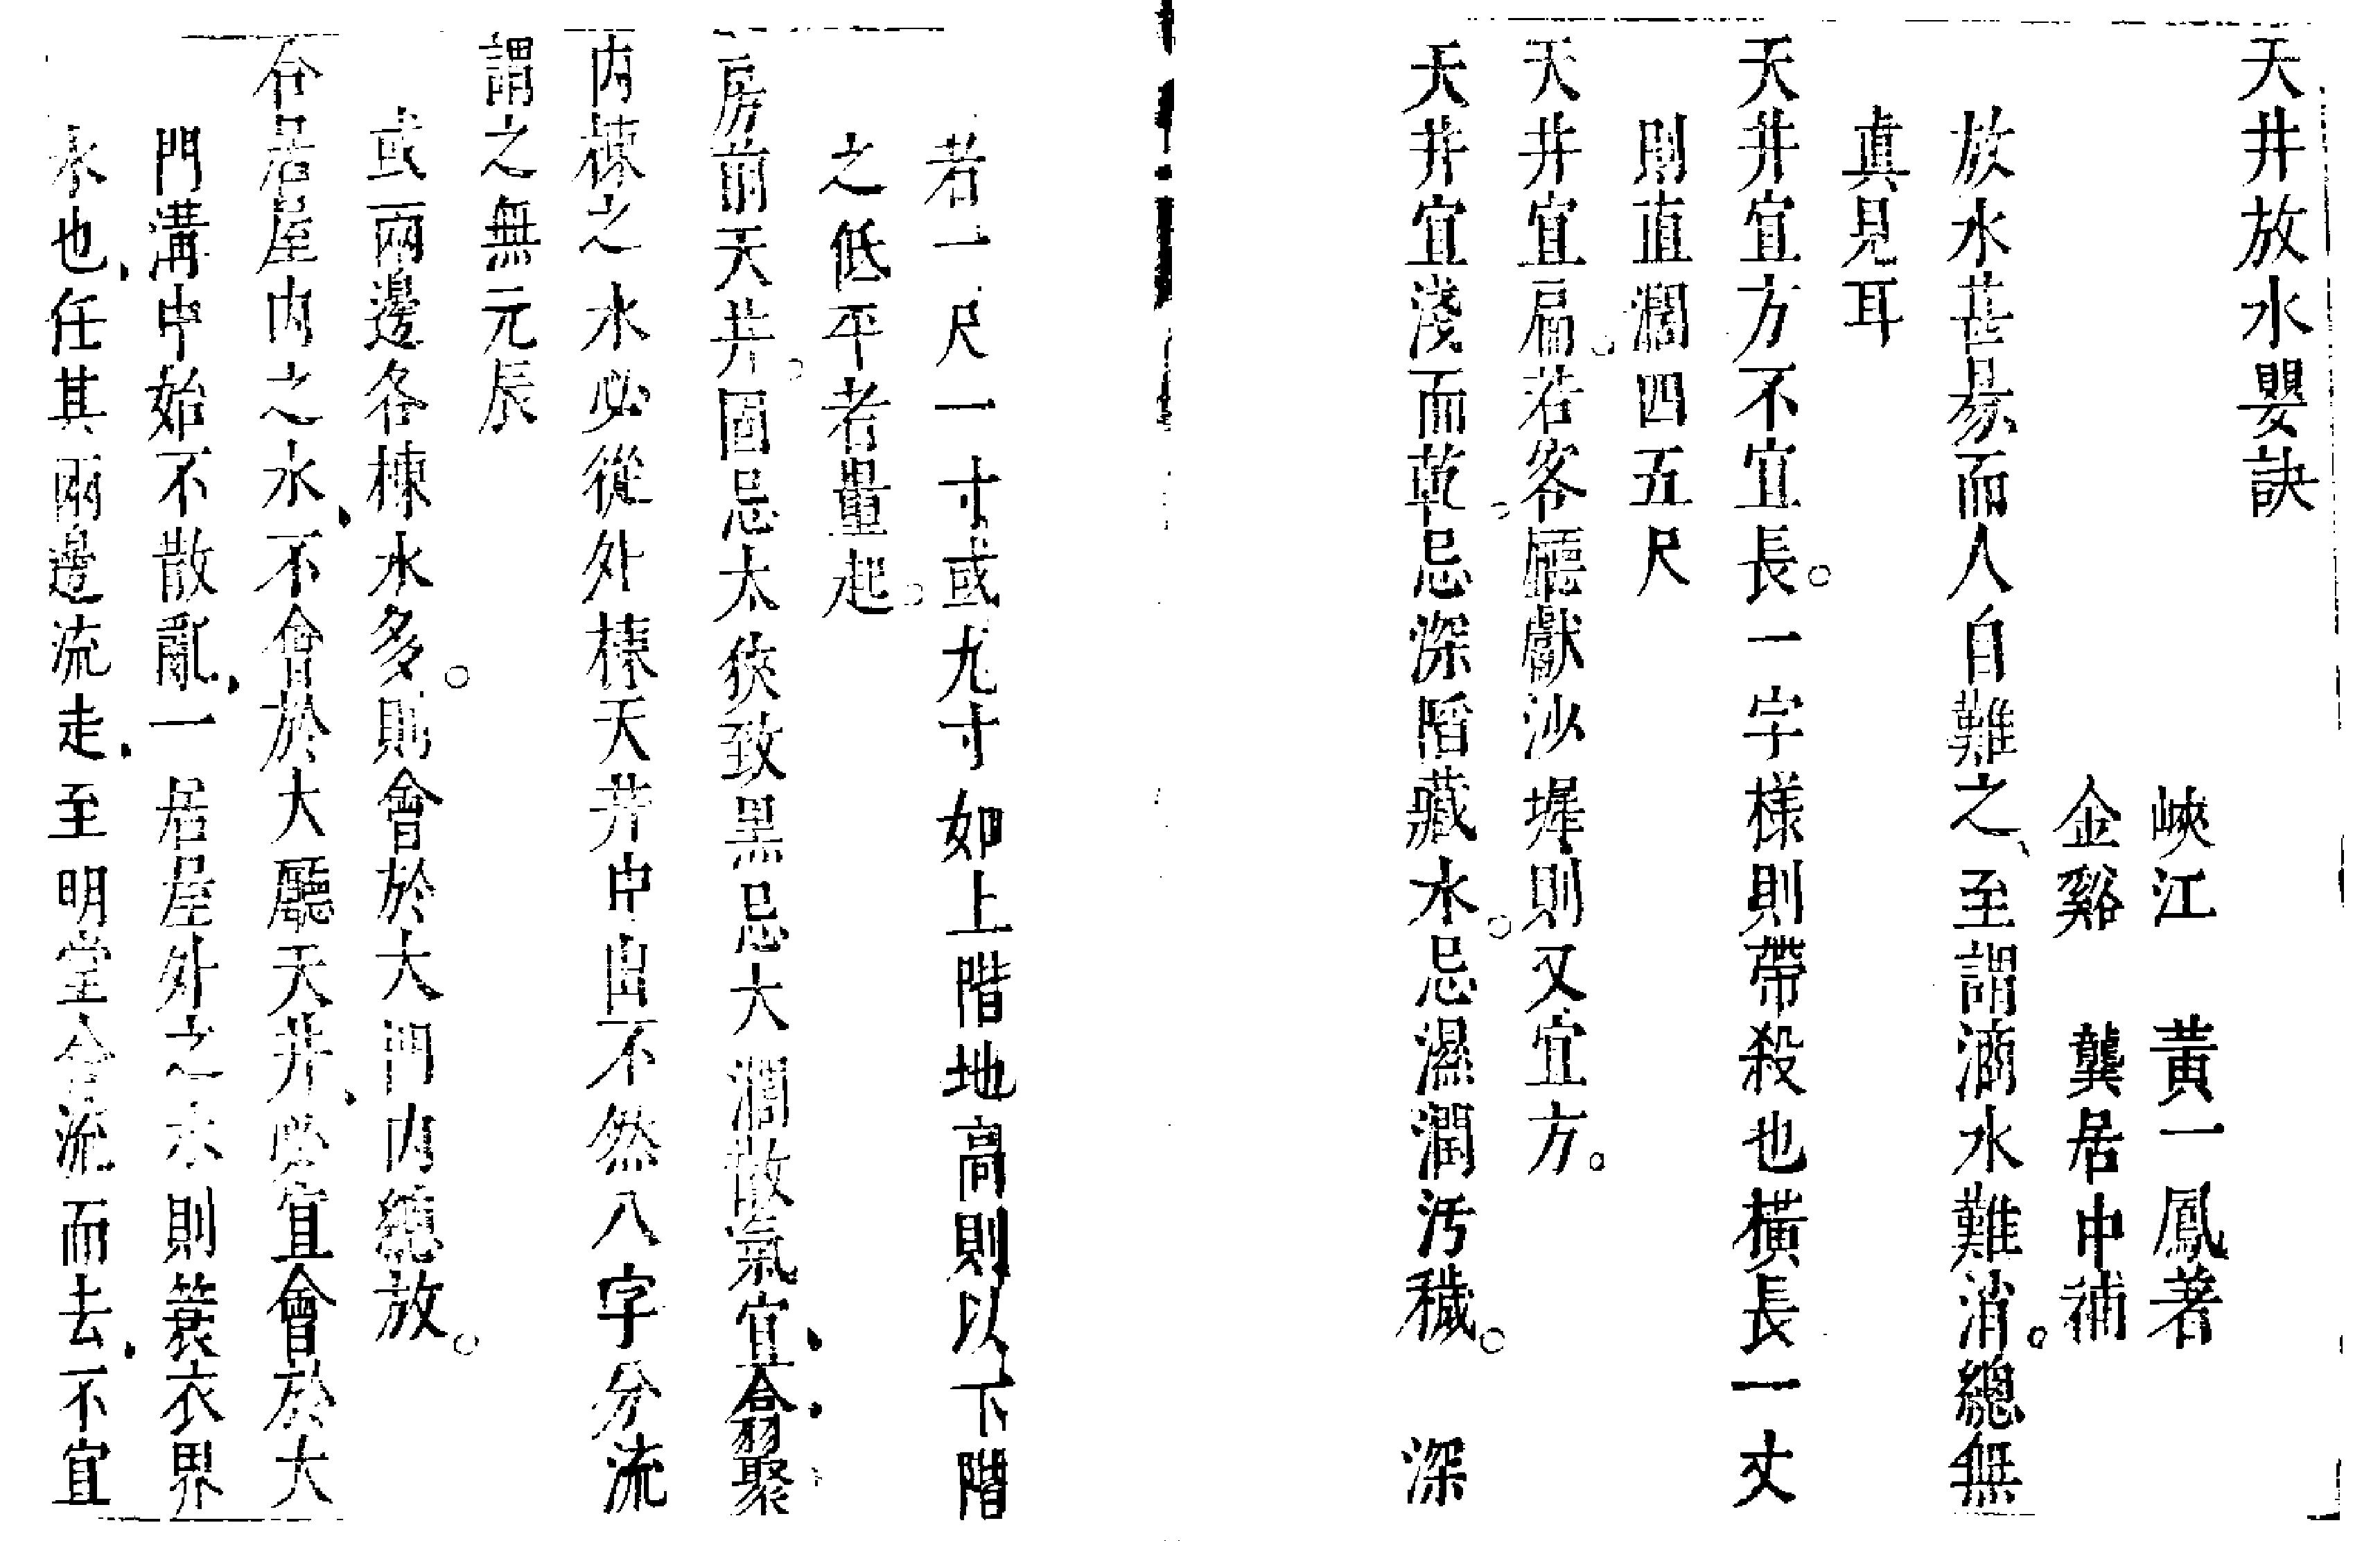 天井放水嬰訣
峽江　黃一鳳著
金谿　龔居中補
放水甚易而人自難之、至謂滴水難消。總無
真見耳
天井宜方不宜長。一字樣則帶殺也橫長一丈
則直濶四五尺
天井宜扁。若客廳獻沙墀則又宜方。
天井宜淺而乾。忌深陷藏水。忌濕潤污穢。　深
者一尺一寸或九寸如上階地高則以下階
之低平者量起。
房前天井。固忌太狹致黑忌大濶散氣宜、合、翕聚、
內棟之水必從外棟天井中出不然八字分流
謂之無元辰
或兩邊各棟水多。則會於大門內總放。
合居屋內之水、不會於大廳天井、必宜會於大
門溝中始不散亂、一居屋外之水則蓑衣界
水也、任其兩邊流走、至明堂合流而去、不宜